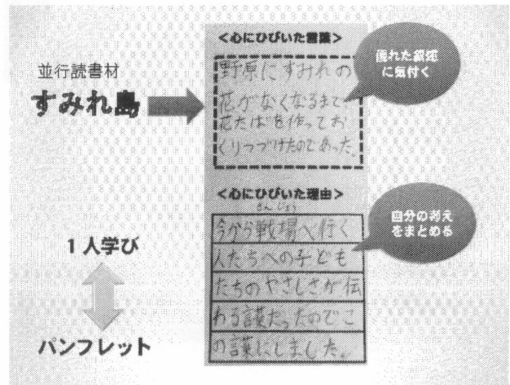 並行読書材
すみれ島
<心にひびいた言葉>
野原にすみれの
花がなくなるまで
花たばを作ってお
くりつづけたのであった。
優れた叙述
に気付く
<心にひびいた理由>
せんじょう
今から戦場へ行く
人たちへの子ども
たちのやさしさが伝
わる言葉だったのでこ
の言葉にしました。
自分の考え
をまとめる
1人学び
パンフレット